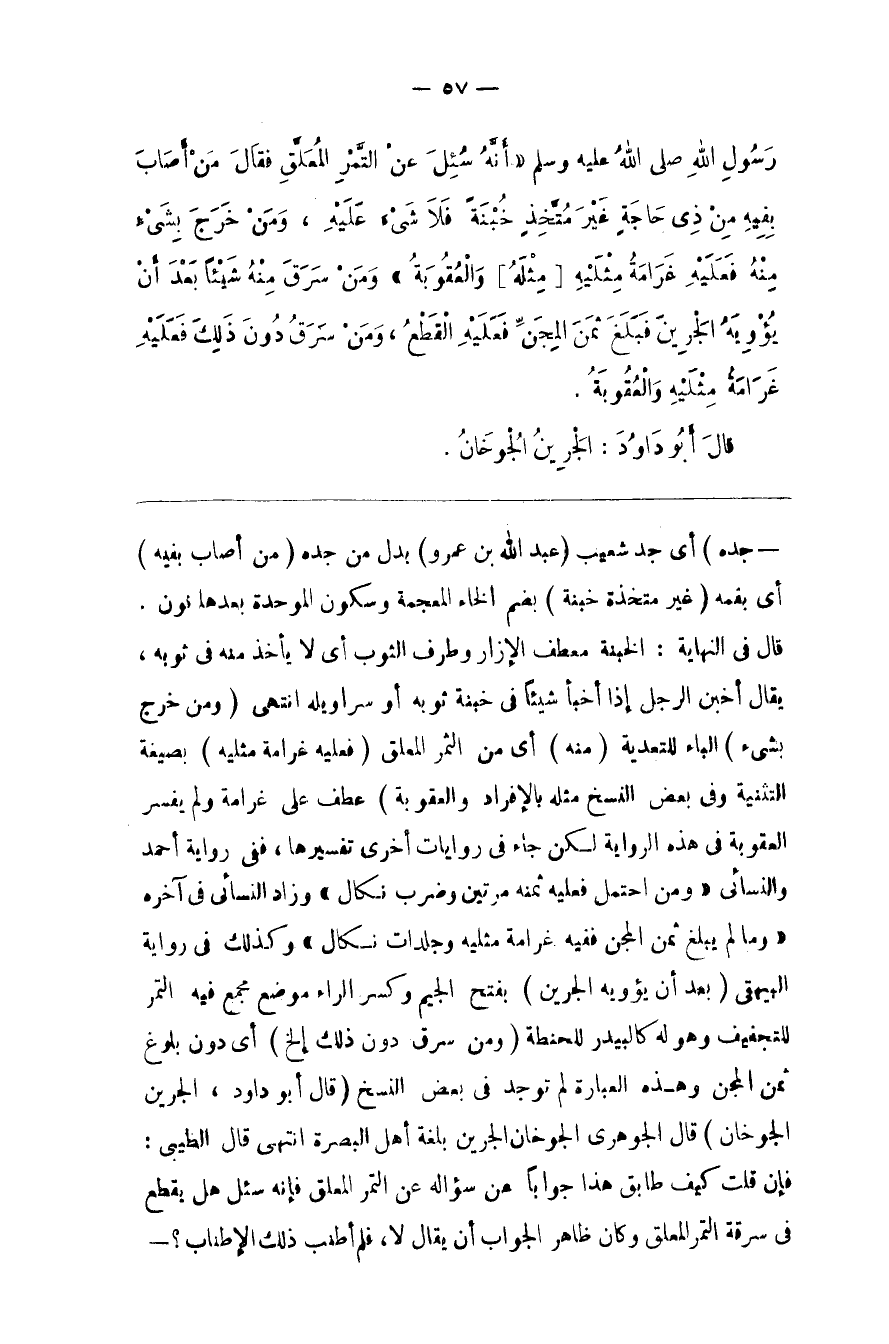 — ٥٧ —
رَسُولِ اللهِ صلى اللهُ عليه وسلم «أَنَّهُ سُئِلَ عن التَّمْرِ الْمُعَلَّقِ فقَالَ مَنْ أَصَابَ
بِفِيهِ مِنْ ذِى حَاجَةٍ غَيْرَ مُتَّخِذٍ خُبْنَةً فَلَا شَىْءَ عَلَيْهِ ، وَمَنْ خَرَجَ بِشَىْءٍ
مِنْهُ فَعَلَيْهِ غَرَامَةُ مِثْلَيْهِ [ مِثْلَهُ ] وَالْعُقُوبَةُ » وَمَنْ سَرَقَ مِنْهُ شَيْئًا بَعْدَ أَنْ
يُؤْوِيَهُ الْجَرِينَ فَبَلَغَ ثَمَنَ الْمِجَنِّ فَعَلَيْهِ الْقَطْعُ ، وَمَنْ سَرَقَ دُونَ ذَلِكَ فَعَلَيْهِ
غَرَامَةُ مِثْلَيْهِ وَالْعُقُوبَةُ .
قَالَ أَبُو دَاوُدَ : الْجَرِينُ الْجُوخَانُ .
— جده ) أى جد شعيب (عبد الله بن عمرو) بدل من جده ( من أصاب بفيه )
أى بفمه ( غير متخذة خبنة ) بضم الخاء المعجمة وسكون الموحدة بعدها نون .
قال فى النهاية : الخبنة معطف الإزار وطرف الثوب أى لا يأخذ منه فى ثوبه ،
يقال أخبن الرجل إذا أخبأ شيئاً فى خبنة ثوبه أو سراويله انتهى ( ومن خرج
بشىء ) الباء للتعدية ( منه ) أى من الثمر المعلق ( فعليه غرامة مثليه ) بصيغة
التثنية وفى بعض النسخ مثله بالإفراد والعقوبة ) عطف على غرامة ولم يفسر
العقوبة فى هذه الرواية لـكن جاء فى روايات أخرى تفسيرها ، ففى رواية أحمد
والنسائى « ومن احتمل فعليه ثمنه مرتين وضرب نـكال » وزاد النسائى فى آخره
« وما لم يبلغ ثمن المجن ففيه غرامة مثليه وجلدات نـكال » وكذلك فى رواية
البيهقى ( بعد أن يؤويه الجرين ) بفتح الجيم وكسر الراء موضع مجمع فيه التمر
للتجفيف وهو له كالبيدر للحنطة ( ومن سرق دون ذلك إلخ ) أى دون بلوغ
ثمن المجن وهـذه العبارة لم توجد فى بعض النسخ ( قال أبو داود ، الجرين
الجوخان ) قال الجوهرى الجوخان الجرين بلغة أهل البصرة انتهى قال الطيبى :
فإن قلت كيف طابق هذا جواباً عن سؤاله عن التمر المعلق فإنه سئل هل يقطع
فى سرقة التمر المعلق وكان ظاهر الجواب أن يقال لا ، فلم أطنب ذلك الإطناب ؟ —